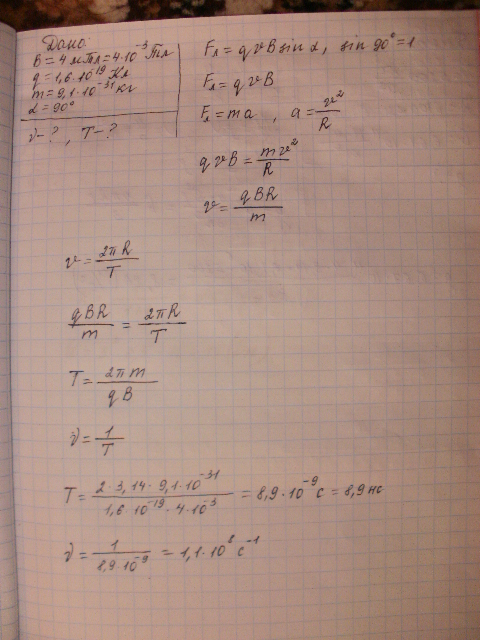 Дано:
B = 4 мТл = 4·10⁻³ Тл
q = 1,6·10⁻¹⁹ Кл
m = 9,1·10⁻³¹ кг
α = 90°
ν - ? , T - ?
Fл = qvB sin α, sin 90° = 1
Fл = qvB
Fл = ma , a = v²/R
qvB = mv²/R
v = qBR/m
v = 2πR/T
qBR/m = 2πR/T
T = 2πm/qB
ν = 1/T
T = 2·3,14·9,1·10⁻³¹/1,6·10⁻¹⁹·4·10⁻³ = 8,9·10⁻⁹ с = 8,9 нс
ν = 1/8,9·10⁻⁹ = 1,1·10⁸ с⁻¹